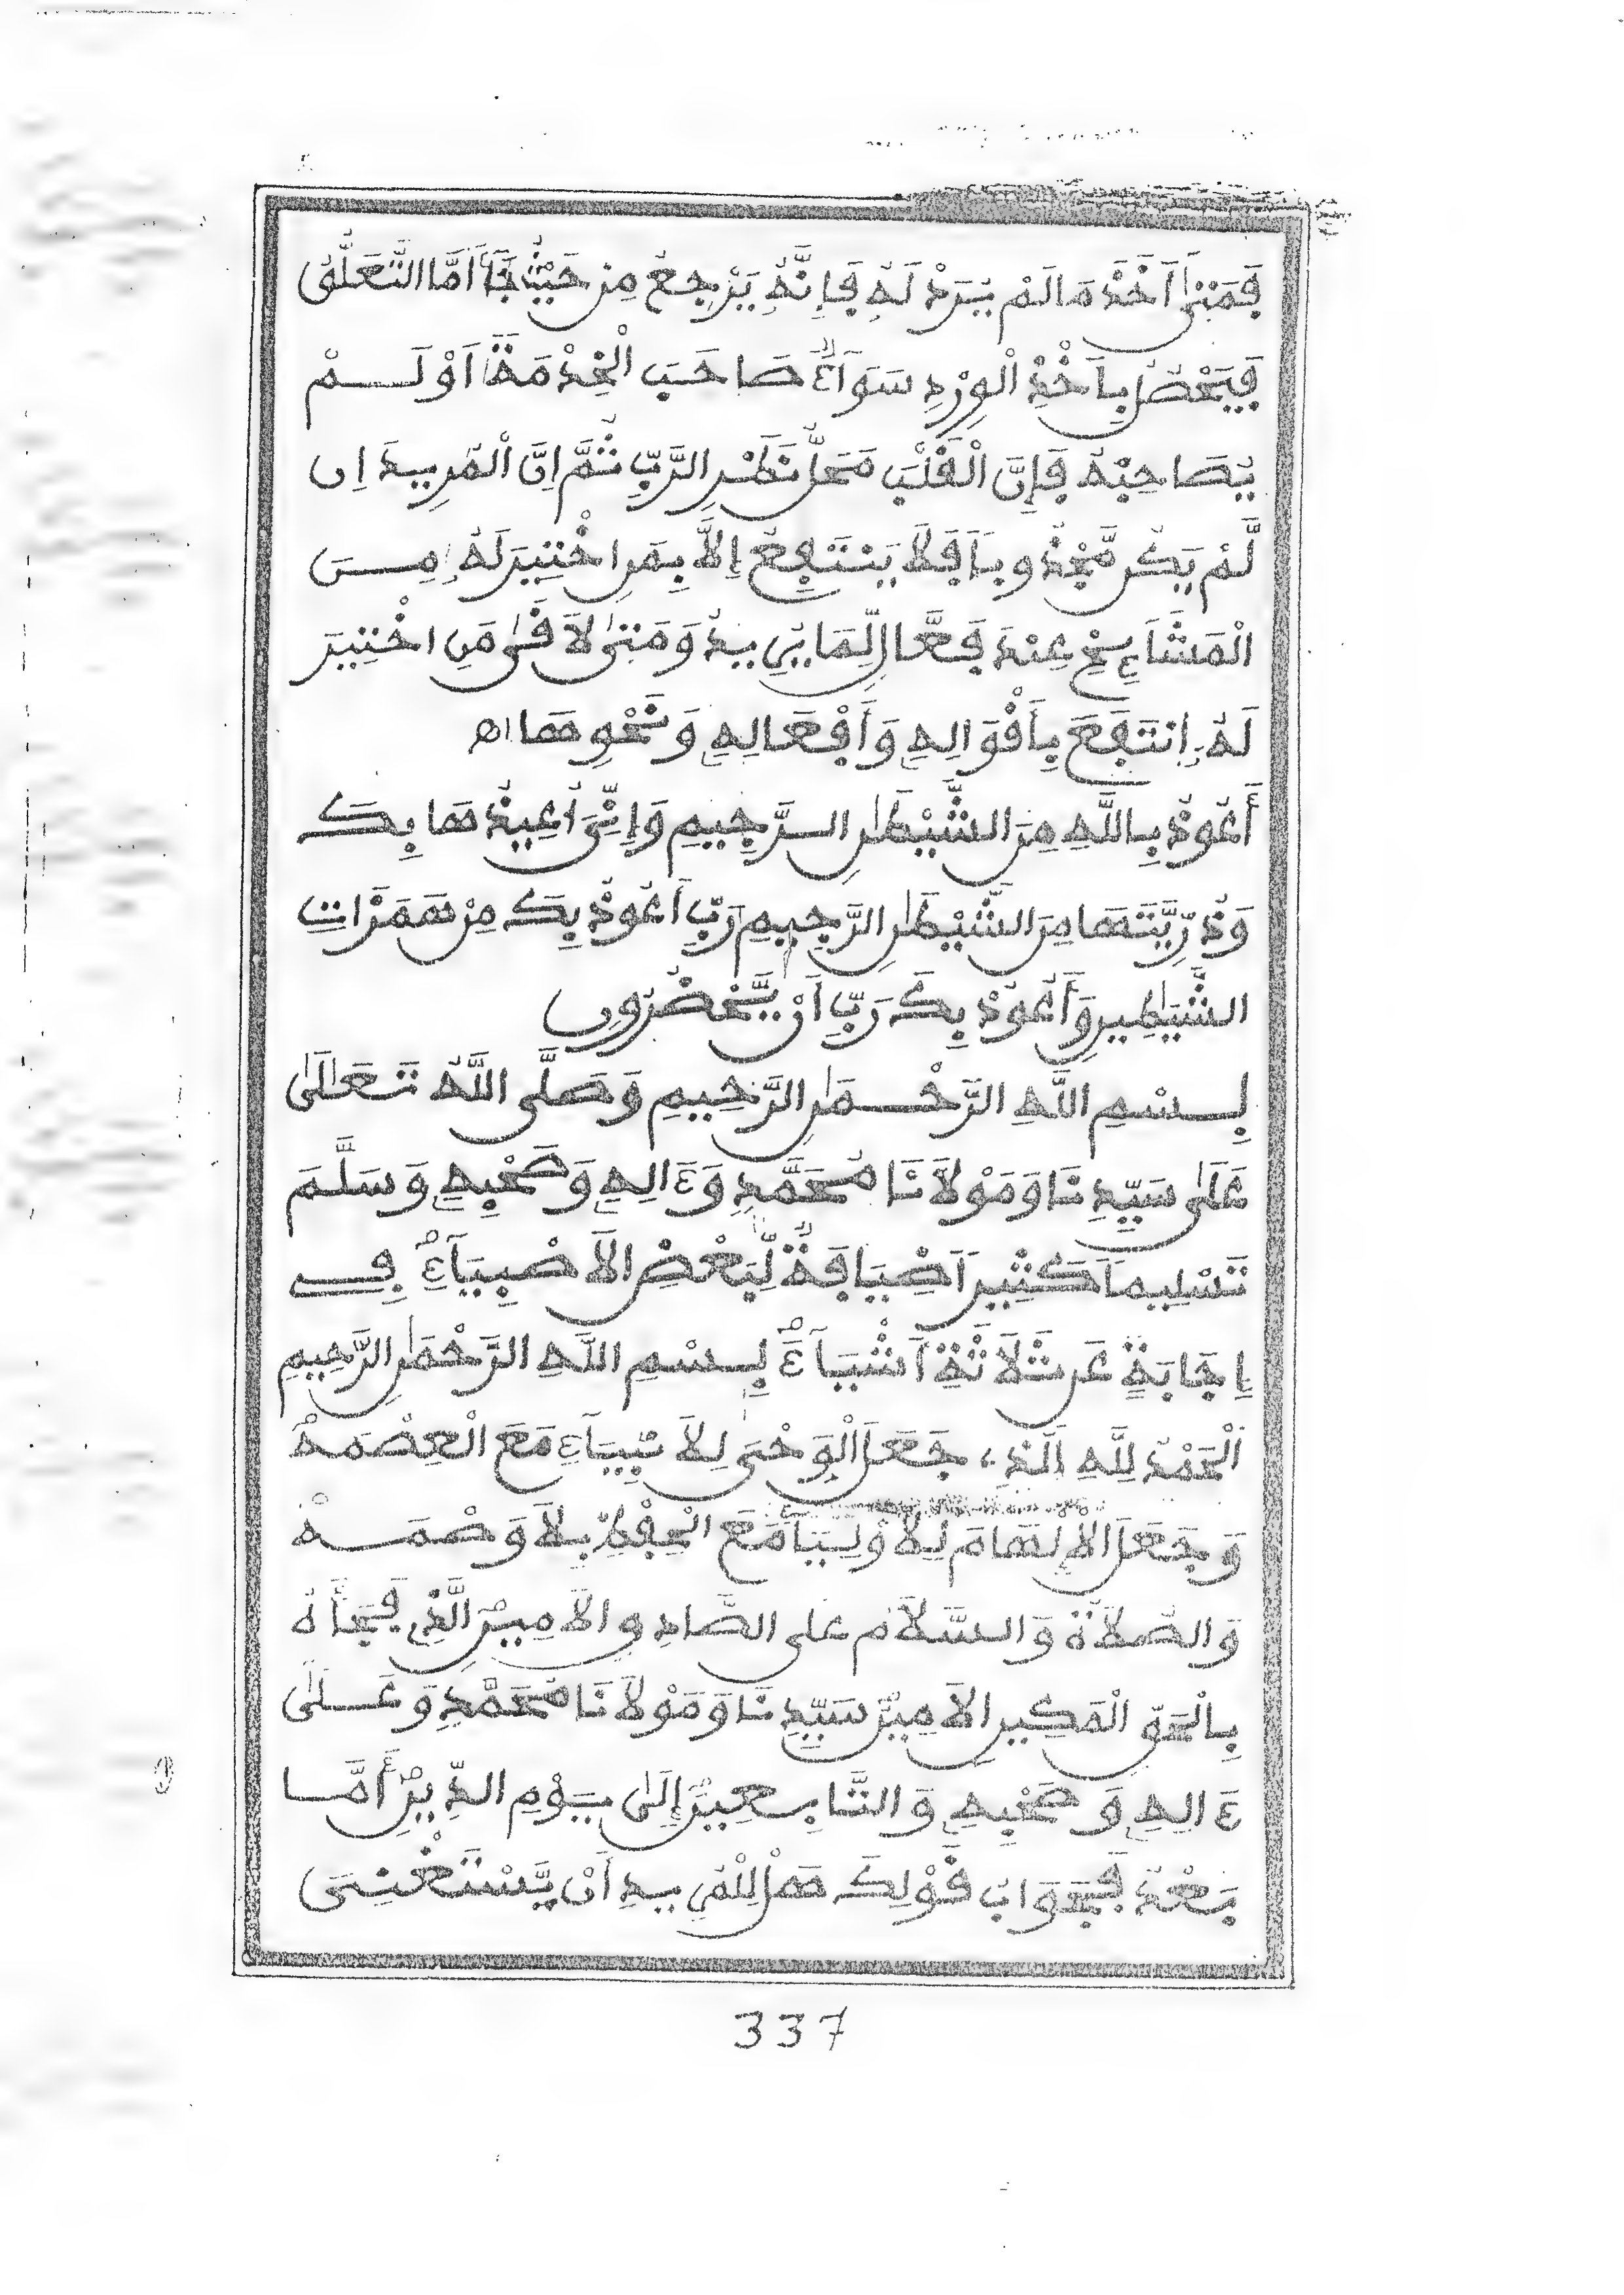 فَمَتَىٰ أَخَذَ مَا لَمْ يُرَدْ لَهُ فَإِنَّهُ يَرْجِعُ مِنْ حَيْثُ جَآءَ أَمَّا التَّعَلُّقُ
فَيَحْصُلُ بِأَخْذِ الْوِرْدِ سَوَآءٌ صَاحَبَ الْخِدْمَةَ أَوْ لَمْ
يُصَاحِبْهُ فَإِنَّ الْقَلْبَ مَحَلُّ نَظَرِ الرَّبِّ ثُمَّ إِنَّ الْمُرِيدَ إِن
لَّمْ يَكُن مَّجْذُوباً فَلَا يَنْتَفِعُ إِلَّا بِمَنِ اخْتِيرَ لَهُ مِنَ
الْمَشَايِخِ عِنْدَ فَعَّالٍ لِّمَا يُرِيدُ وَمَتَىٰ لَاقَىٰ مَنِ اخْتِيرَ
لَهُ إِنتَفَعَ بِأَقْوَالِهِ وَأَفْعَالِهِ وَنَحْوِهَا اه
أَعُوذُ بِاللَّهِ مِنَ الشَّيْطَٰنِ الرَّجِيمِ وَإِنِّىَ أُعِيذُهَا بِكَ
وَذُرِّيَّتَهَا مِنَ الشَّيْطَٰنِ الرَّجِيمِ رَبِّ أَعُوذُ بِكَ مِنْ هَمَزَاتِ
الشَّيَٰطِينِ وَأَعُوذُ بِكَ رَبِّ أَنْ يَّحْضُرُونِ
بِسْمِ اللَّهِ الرَّحْمَٰنِ الرَّحِيمِ وَصَلَّى اللَّهُ تَعَالَىٰ
عَلَىٰ سَيِّدِنَا وَمَوْلَانَا مُحَمَّدٍ وَءَالِهِ وَصَحْبِهِ وَسَلَّمَ
تَسْلِيماً كَثِيراً ضِيَافَةٌ لِّبَعْضِ الْأَصْفِيَآءِ فِى
إِجَابَةٍ عَن ثَلَاثَةِ أَشْيَآءَ بِسْمِ اللَّهِ الرَّحْمَٰنِ الرَّحِيمِ
اَلْحَمْدُ لِلَّهِ الَّذِى جَعَلَ الْوَحْىَ لِلْأَنْبِيَآءِ مَعَ الْعِصْمَهْ
وَجَعَلَ الْإِلْهَامَ لِلْأَوْلِيَآءِ مَعَ الْحِفْظِ بِلَا وَصْمَهْ
وَالصَّلَاةُ وَالسَّلَامُ عَلَى الصَّادِقِ الْأَمِينِ الَّذِى فَجَأَهُ
بِالْحَقِّ الْمَكِينِ الْأَمِينُ سَيِّدِنَا وَمَوْلَانَا مُحَمَّدٍ وَعَلَىٰ
ءَالِهِ وَصَحْبِهِ وَالتَّابِعِينَ إِلَىٰ يَوْمِ الدِّينِ أَمَّا
بَعْدُ فَجَوَابُ قَوْلِكَ هَلْ لِلْمُرِيدِ أَنْ يَّسْتَغْنِىَ
337